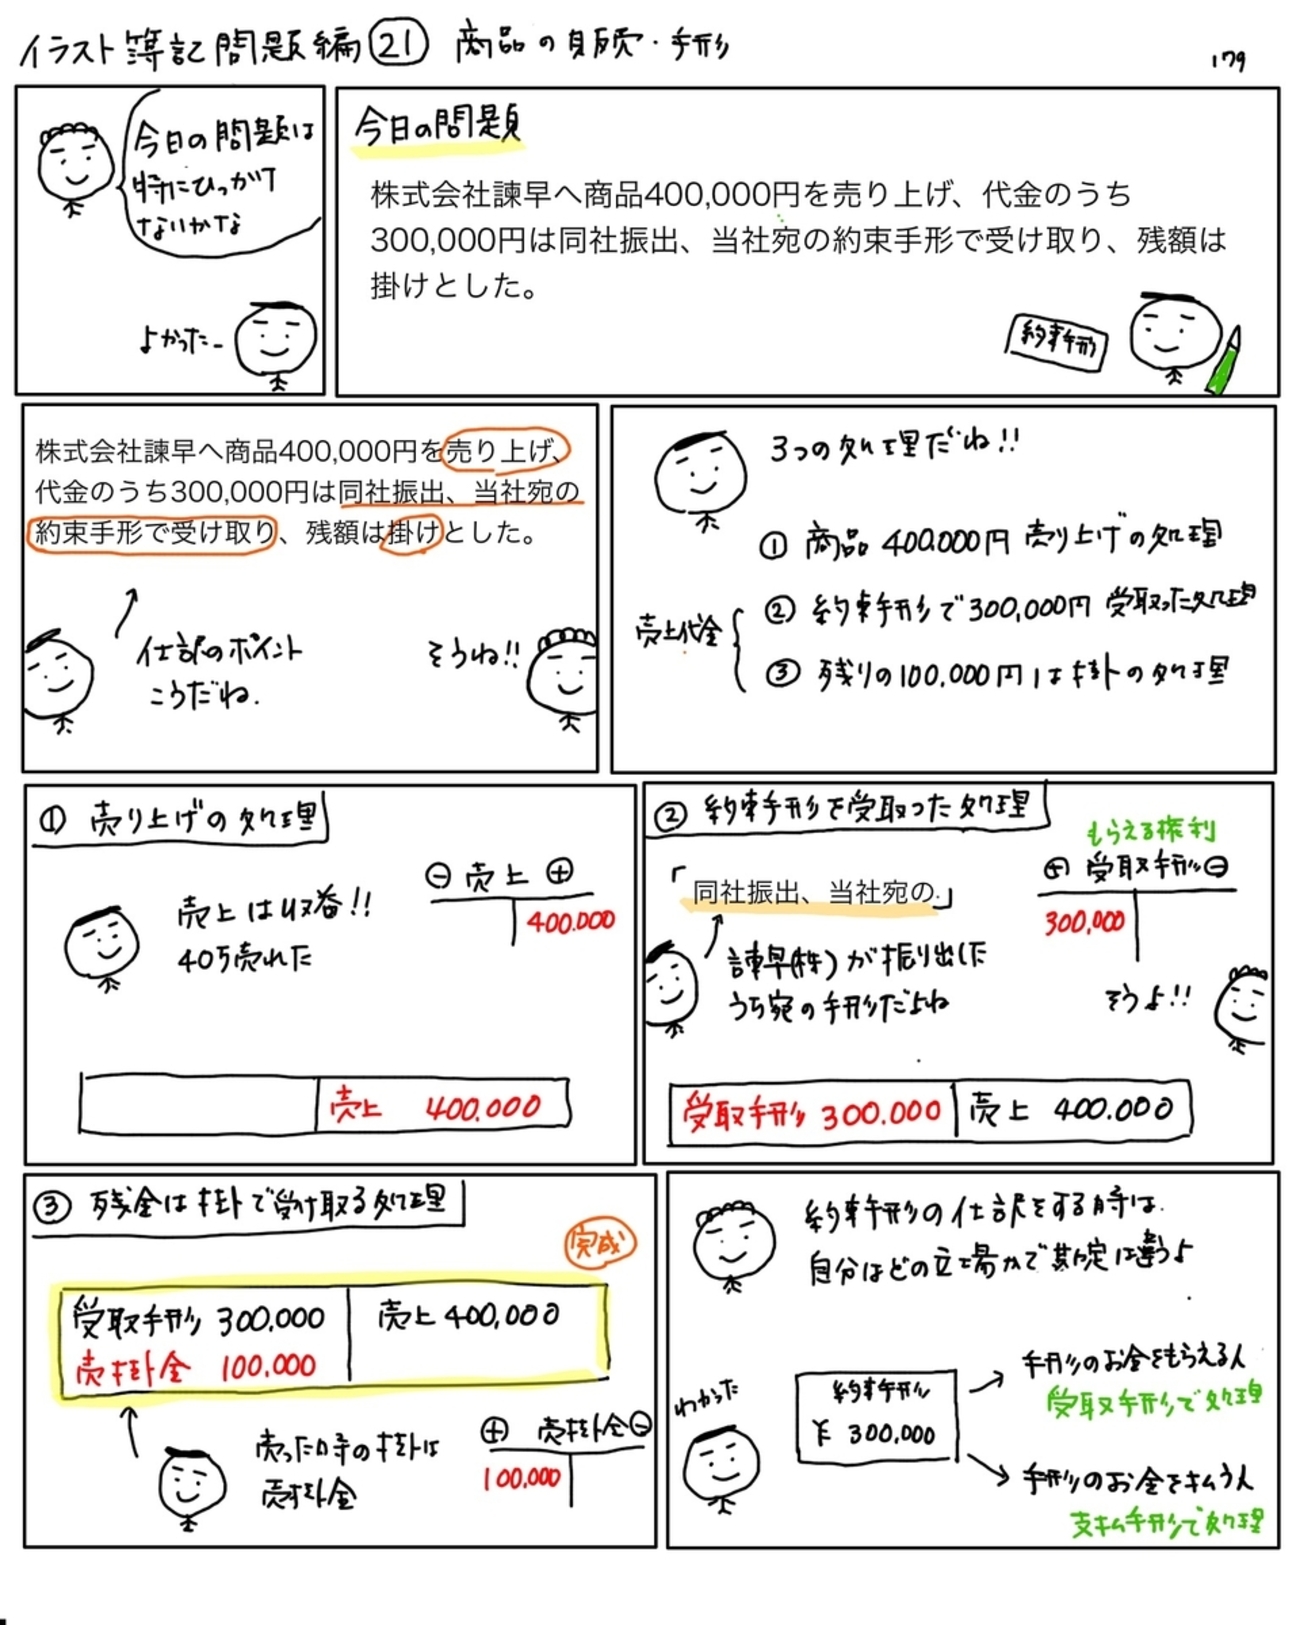 イラスト簿記問題編㉑ 商品の販売・手形
179
今日の問題は
特にひっかけ
ないかな
よかったー
今日の問題
株式会社諫早へ商品400,000円を売り上げ、代金のうち
300,000円は同社振出、当社宛の約束手形で受け取り、残額は
掛けとした。
約束手形
株式会社諫早へ商品400,000円を売り上げ、
代金のうち300,000円は同社振出、当社宛の
約束手形で受け取り、残額は掛けとした。
仕訳のポイント
こうだね.
そうね!!
3つの処理だね!!
① 商品 400.000円 売り上げの処理
売上代金
② 約束手形で300,000円 受取った処理
③ 残りの100,000円は掛の処理
① 売り上げの処理
売上は収益!!
40万売れた
⊖ 売上 ⊕
400.000
売上 400.000
② 約束手形を受取った処理
「同社振出、当社宛の」
諫早(株)が振り出した
うち宛の手形だよね
もらえる権利
⊕ 受取手形 ⊖
300,000
そうよ!!
受取手形 300.000 売上 400.000
③ 残金は掛で受け取る処理
完成
受取手形 300,000 売上 400,000
売掛金 100.000
売った時の掛は
売掛金
⊕ 売掛金 ⊖
100,000
約束手形の仕訳をする時は.
自分はどの立場かで勘定は違うよ
わかった
約束手形
¥ 300,000
手形のお金をもらえる人
受取手形で処理
手形のお金を払う人
支払手形で処理